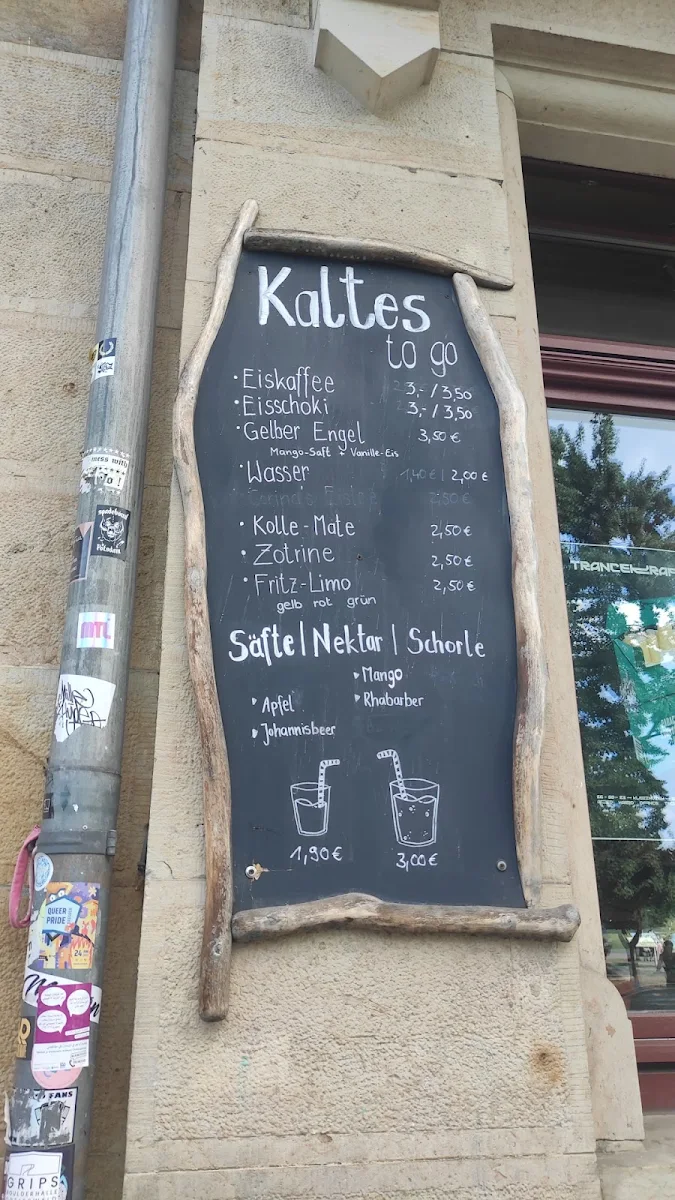 Kaltes
to go
· Eiskaffee 3,- / 3,50
· Eisschoki 3,- / 3,50
· Gelber Engel 3,50 €
Mango-Saft + Vanille-Eis
· Wasser 1,40 € | 2,00 €
· Kolle-Mate 2,50 €
· Zotrine 2,50 €
· Fritz-Limo 2,50 €
gelb rot grün
Säfte | Nektar | Schorle
Mango
Apfel
Rhabarber
Johannisbeer
1,90 €
3,00 €
MTL
QUEER
PRIDE
FANS
GRIPS